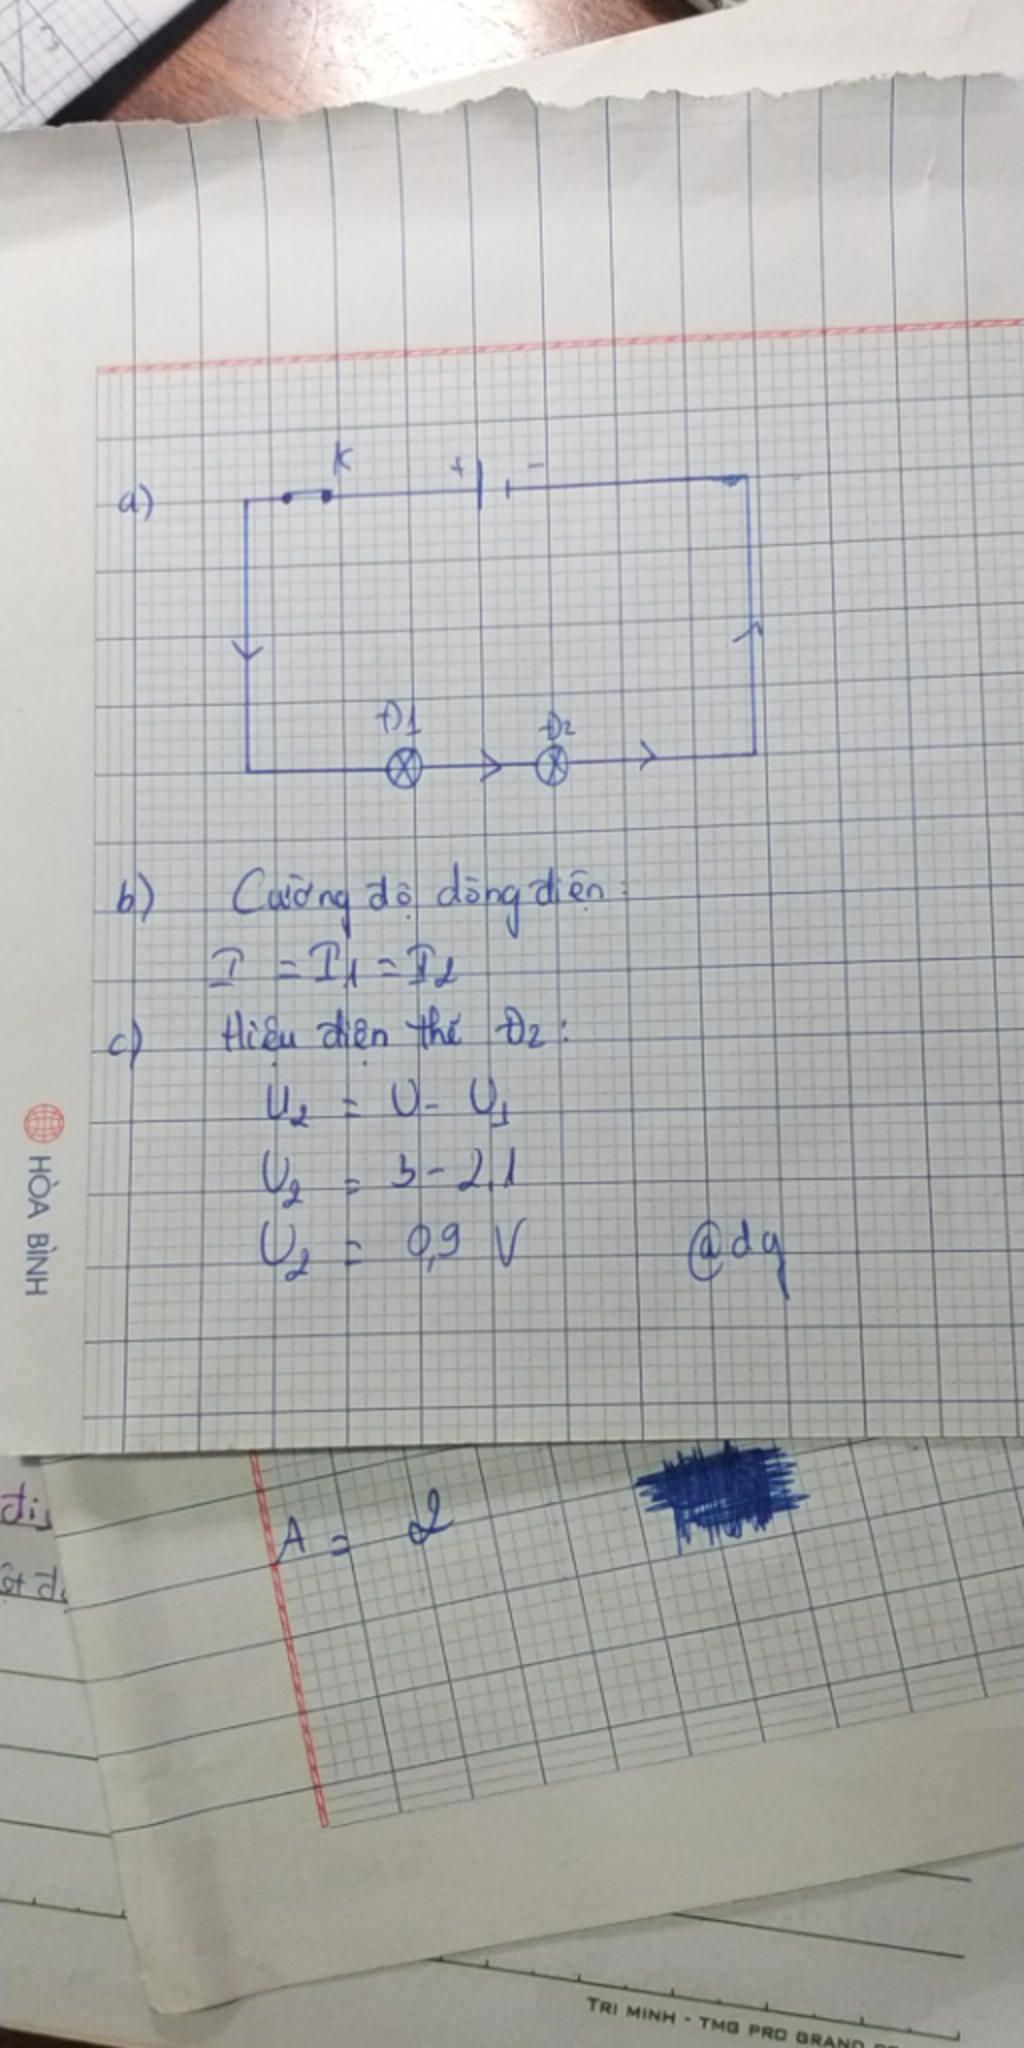 K
+ -
a)
Đ1 Đ2
b) Cường độ dòng điện:
I = I1 = I2
c) Hiệu điện thế Đ2:
U2 = U - U1
U2 = 3 - 2,1
U2 = 0,9 V @dq
HÒA BÌNH
A = 2
TRI MINH - TMG PRO GRAND